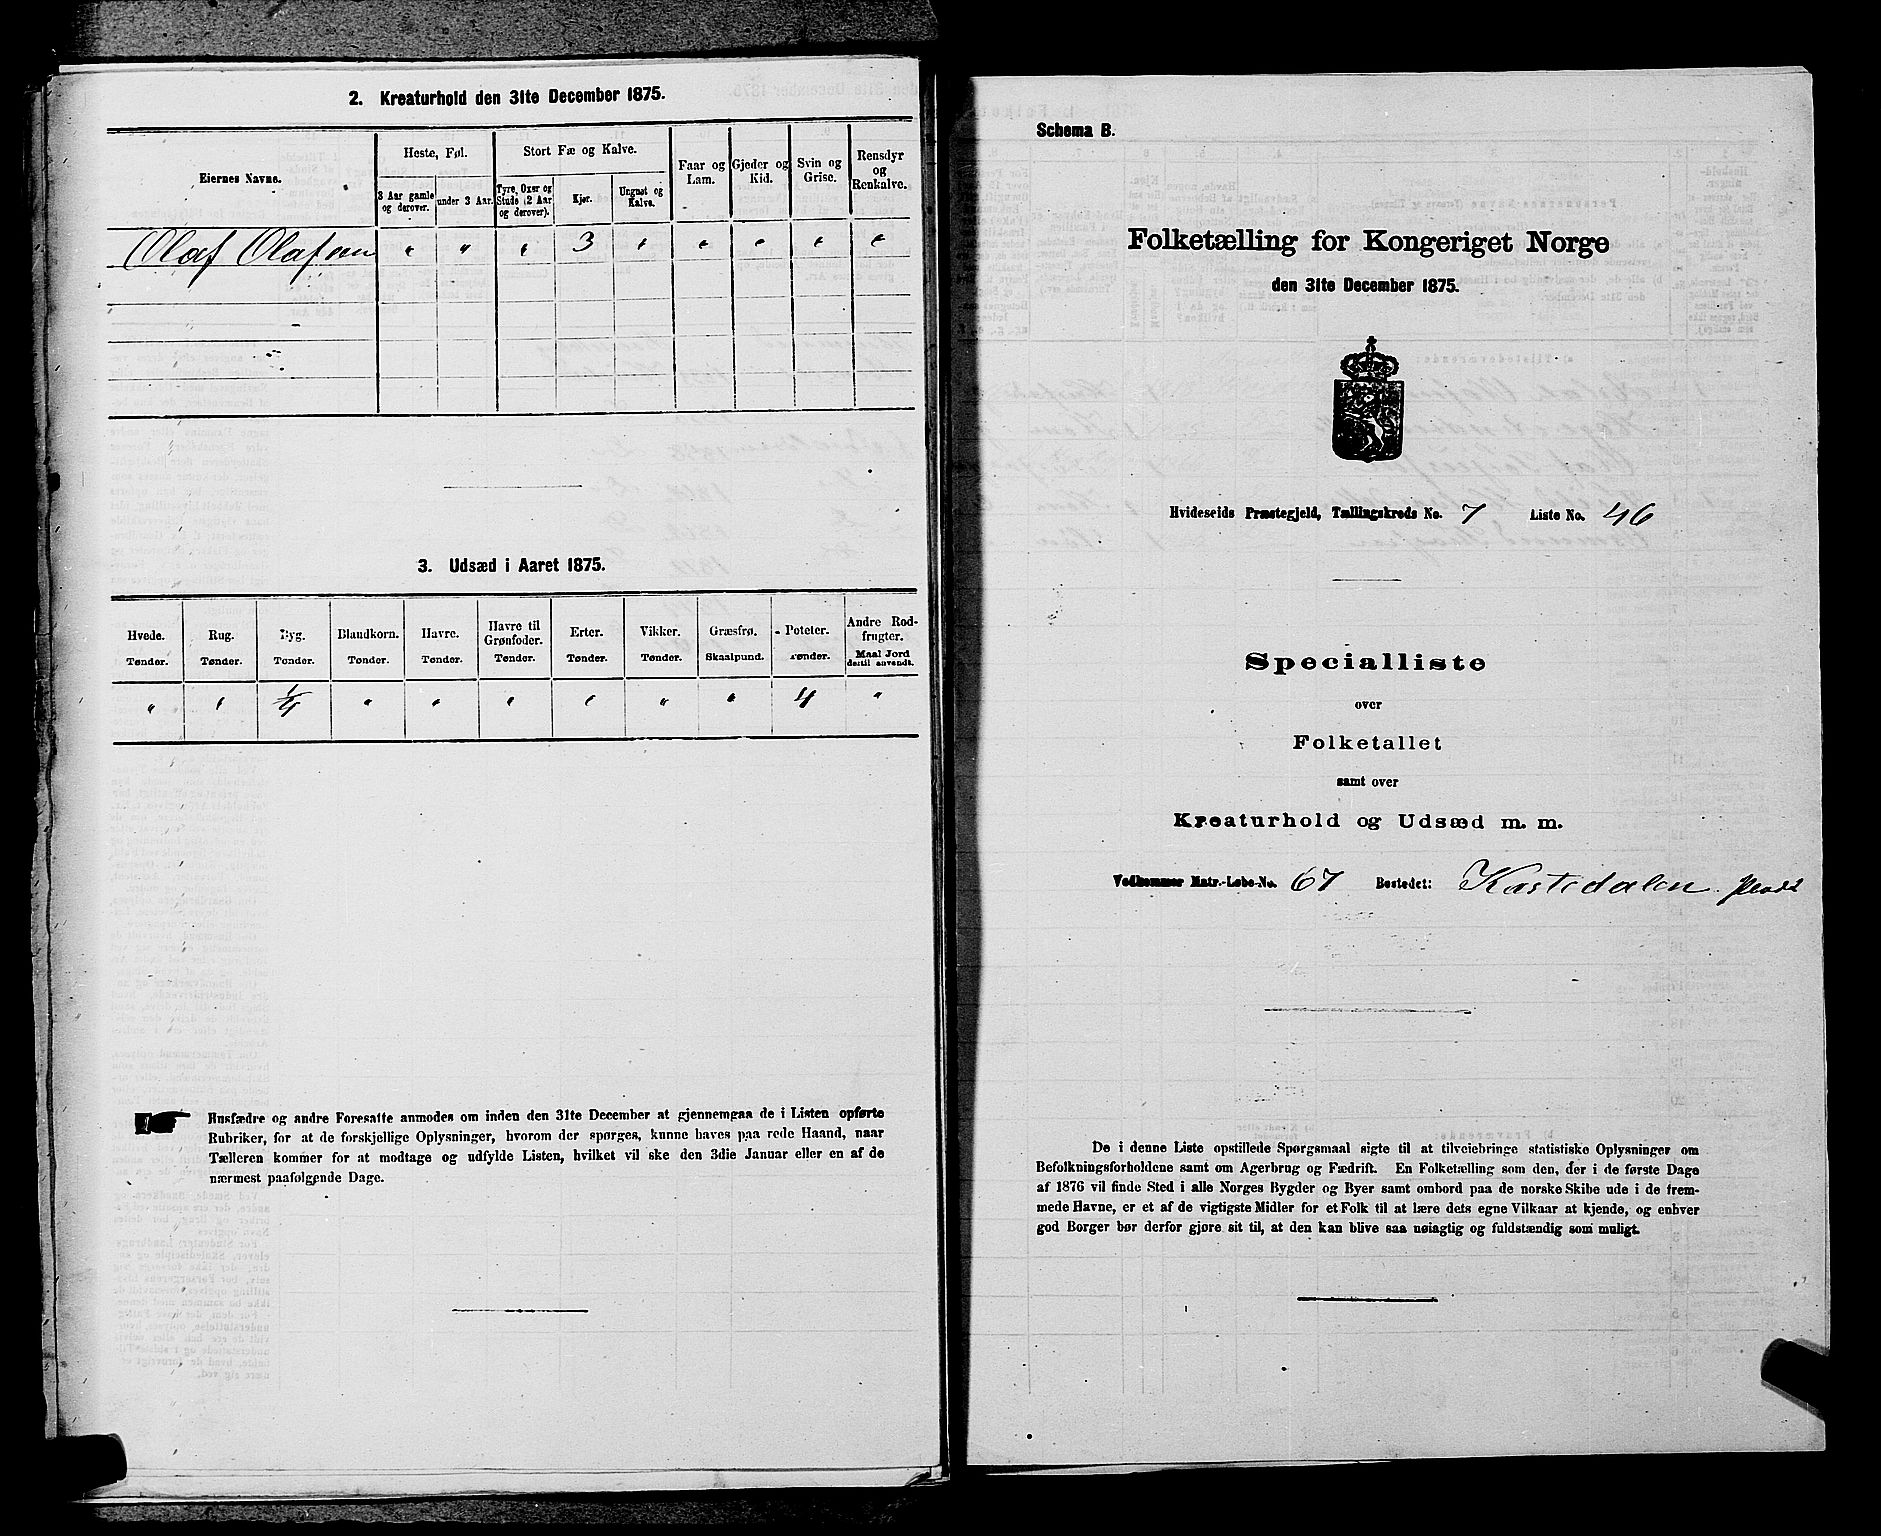 2. Kreaturhold den 31te December 1875.
Eiernes Navne.
Heste, Føl.
Stort Fæ og Kalve.
Faar og Lam.
Gjeder og Kid.
Svin og Grise.
Rensdyr og Renkalve.
3 Aar gamle og derover.
under 3 Aar.
Tyre, Oxer og Stude (2 Aar og derover).
Kjør.
Ungnøt og Kalve.
Olaf Olafsen " " " 3 " " " " "
3. Udsæd i Aaret 1875.
Hvede. Rug. Byg. Blandkorn. Havre. Havre til Grønfoder. Erter. Vikker. Græsfrø. Poteter. Andre Rodfrugter.
Tønder. Tønder. Tønder. Tønder. Tønder. Tønder. Tønder. Tønder. Skaalpund. Tønder. Maal Jord dertil anvendt.
" " 1/4 " " " " " " 4 "
Husfædre og andre Foresatte anmodes om inden den 31te December at gjennemgaa de i Listen opførte
Rubriker, for at de forskjellige Oplysninger, hvorom der spørges, kunne haves paa rede Haand, naar
Tælleren kommer for at modtage og udfylde Listen, hvilket vil ske den 3die Januar eller en af de
nærmest paafølgende Dage.
Schema B.
Folketælling for Kongeriget Norge
den 31te December 1875.
Hvideseids Præstegjeld, Tællingskreds No. 7 Liste No. 46
Specialliste
over
Folketallet
samt over
Kreaturhold og Udsæd m. m.
Vedkommer Matr.-Løbe-No. 67 Bostedet: Kastedalen, Plads
De i denne Liste opstillede Spørgsmaal sigte til at tilveiebringe statistiske Oplysninger om
Befolkningsforholdene samt om Agerbrug og Fædrift. En Folketælling som den, der i de første Dage
af 1876 vil finde Sted i alle Norges Bygder og Byer samt ombord paa de norske Skibe ude i de frem-
mede Havne, er et af de vigtigste Midler for et Folk til at lære dets egne Vilkaar at kjende, og enhver
god Borger bør derfor gjøre sit til, at den kan blive saa nøiagtig og fuldstændig som muligt.